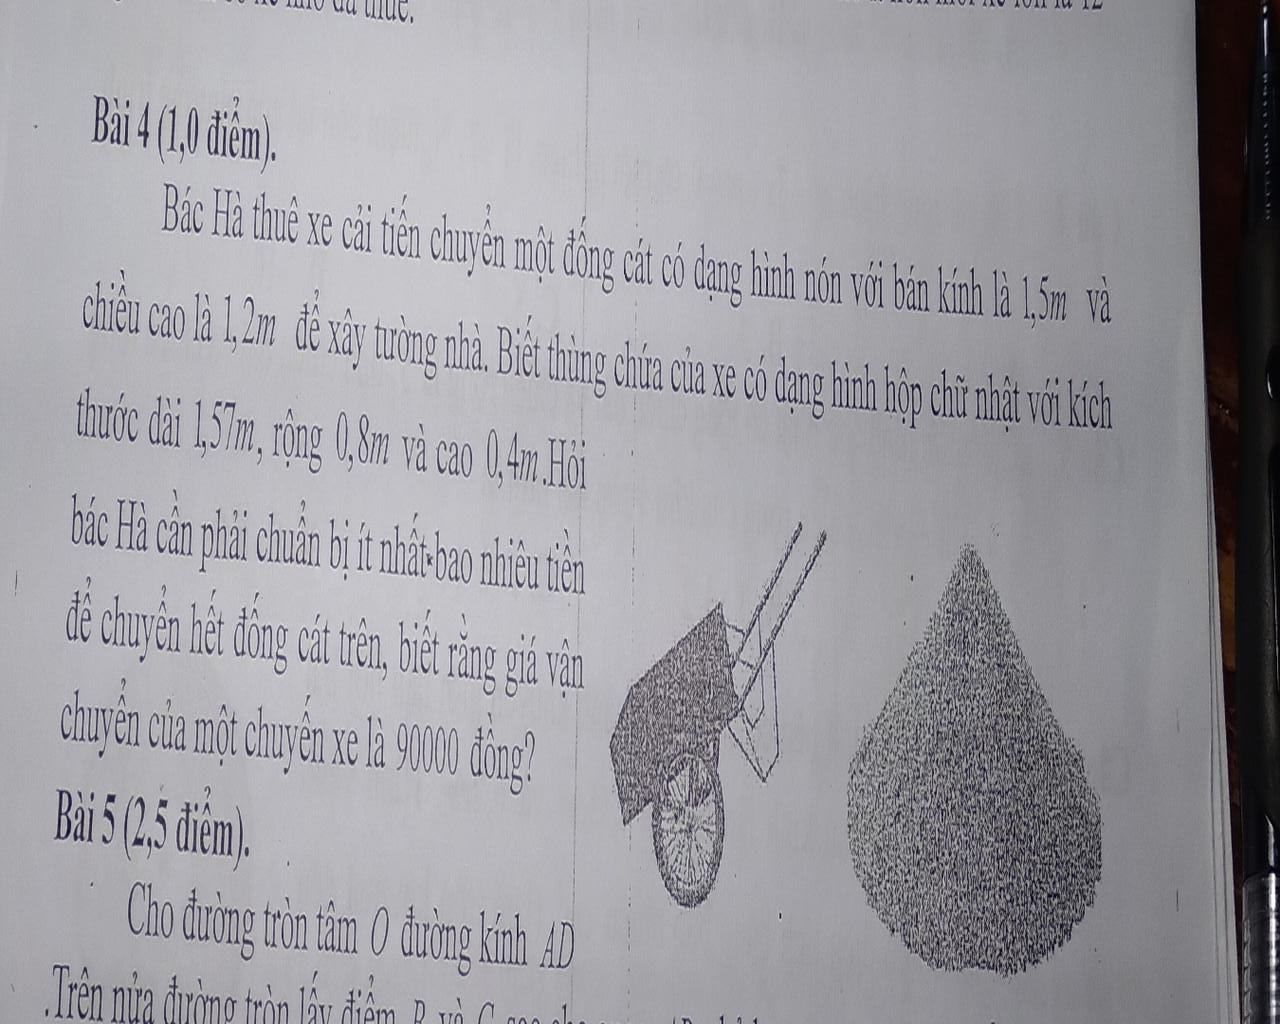 đã thuê.
12
Bài 4 (1,0 điểm).
Bác Hà thuê xe cải tiến chuyển một đống cát có dạng hình nón với bán kính là 1,5m và
chiều cao là 1,2m để xây tường nhà. Biết thùng chứa của xe có dạng hình hộp chữ nhật với kích
thước dài 1,57m, rộng 0,8m và cao 0,4m.Hỏi
bác Hà cần phải chuẩn bị ít nhất bao nhiêu tiền
để chuyển hết đống cát trên, biết rằng giá vận
chuyển của một chuyến xe là 90000 đồng?
Bài 5 (2,5 điểm).
Cho đường tròn tâm O đường kính AD
.Trên nửa đường tròn lấy điểm B và C sao cho